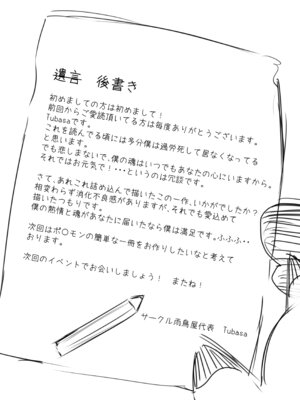 遺言 後書き
初めましての方は初めまして！
前回からご愛読頂いてる方は毎度ありがとうございます。
Tubasaです。
これを読んでる頃には多分僕は過労死して居なくなってる
と思います。
でも悲しまないで、僕の魂はいつでもあなたの心にいますから。
それではお元気で！・・・というのは冗談です。
さて、あれこれ詰め込んで描いたこの一作、いかがでしたか？
相変わらず消化不良感がありますが、それでも愛込めて
描いたつもりです。
僕の熱情と魂があなたに届いたなら僕は満足です。ふふふ・・・
次回はポ○モンの簡単な一冊をお作りしたいなと考えて
おります。
次回のイベントでお会いしましょう！ またね！
サークル雨鳥屋代表 Tubasa